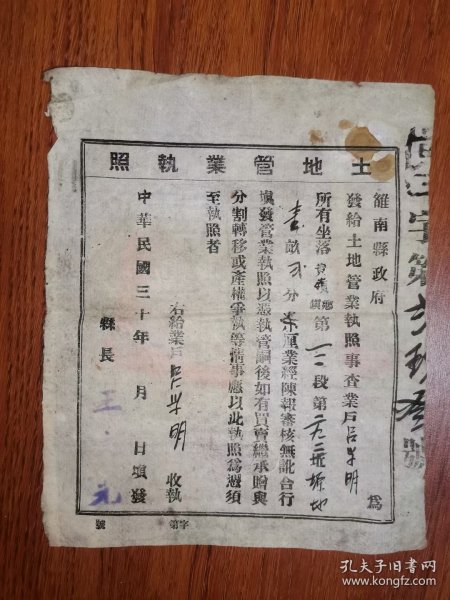 土地管業執照
雒南縣政府
發給土地管業執照事查業戶呂学明為
所有坐落鄉鎮第一二段第坵坡地
壹畝弍分釐厘業經陳報審核無訛台行
填發管業執照以憑執管嗣後如有買賣繼承贈與
分割轉移或產權爭執等情事應以此執照為憑須
至執照者
右給業戶呂学明收執
中華民國三十年 月 日填發
縣長 王元
字第 號
孔夫子旧书网
www.kongfz.com